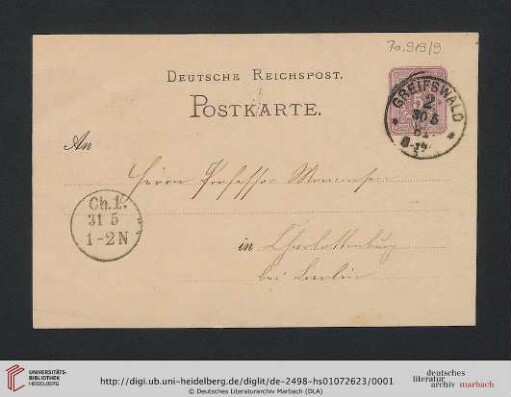 70.919/9
DEUTSCHE REICHSPOST.
POSTKARTE.
GREIFSWALD
2
30 5
81
An
Herrn Professor Mommsen
Ch.1.
31 5
1-2N
in Charlottenburg
bei Berlin
UNIVERSITÄTS-
BIBLIOTHEK
HEIDELBERG
http://digi.ub.uni-heidelberg.de/diglit/de-2498-hs01072623/0001
© Deutsches Literaturarchiv Marbach (DLA)
deutsches
literatur
archiv marbach